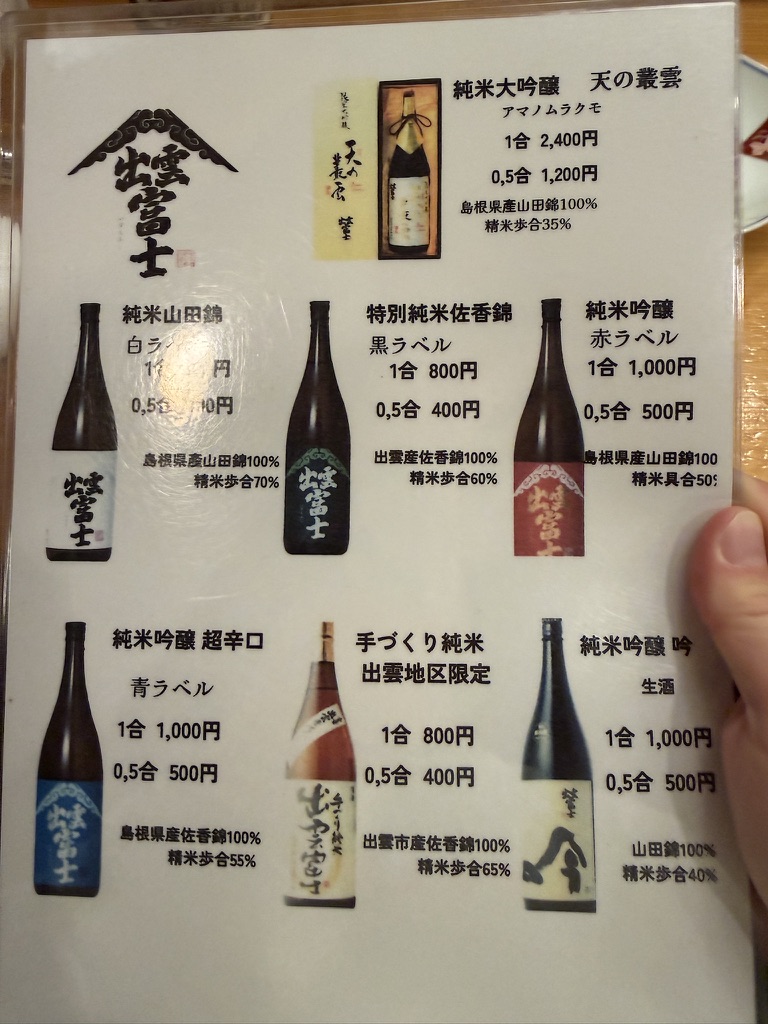 出雲富士
純米大吟醸 天の叢雲
アマノムラクモ
1合 2,400円
0,5合 1,200円
島根県産山田錦100%
精米歩合35%
天の叢雲
純米山田錦
白ラベ
1合 円
0,5合 00円
島根県産山田錦100%
精米歩合70%
出雲富士
特別純米佐香錦
黒ラベル
1合 800円
0,5合 400円
出雲産佐香錦100%
精米歩合60%
出雲富士
純米吟醸
赤ラベル
1合 1,000円
0,5合 500円
島根県産山田錦100
精米具合50%
出雲富士
純米吟醸 超辛口
青ラベル
1合 1,000円
0,5合 500円
島根県産佐香錦100%
精米歩合55%
出雲富士
手づくり純米
出雲地区限定
1合 800円
0,5合 400円
出雲市産佐香錦100%
精米歩合65%
手づくり純米
出雲富士
純米吟醸 吟
生酒
1合 1,000円
0,5合 500円
山田錦100%
精米歩合40%
吟